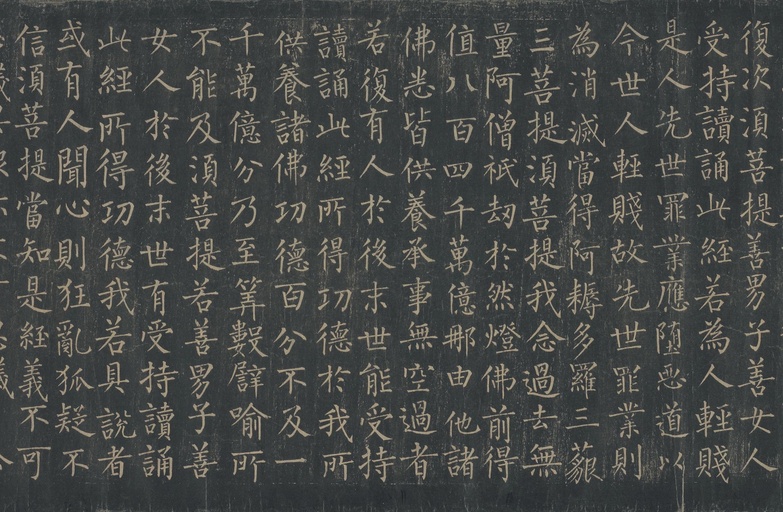 復次須菩提善男子善女人
受持讀誦此經若為人輕賤
是人先世罪業應墮惡道以
今世人輕賤故先世罪業則
為消滅當得阿耨多羅三藐
三菩提須菩提我念過去無
量阿僧祇劫於然燈佛前得
值八百四千萬億那由他諸
佛悉皆供養承事無空過者
若復有人於後末世能受持
讀誦此經所得功德於我所
供養諸佛功德百分不及一
千萬億分乃至筭數譬喻所
不能及須菩提若善男子善
女人於後末世有受持讀誦
此經所得功德我若具說者
或有人聞心則狂亂狐疑不
信須菩提當知是經義不可